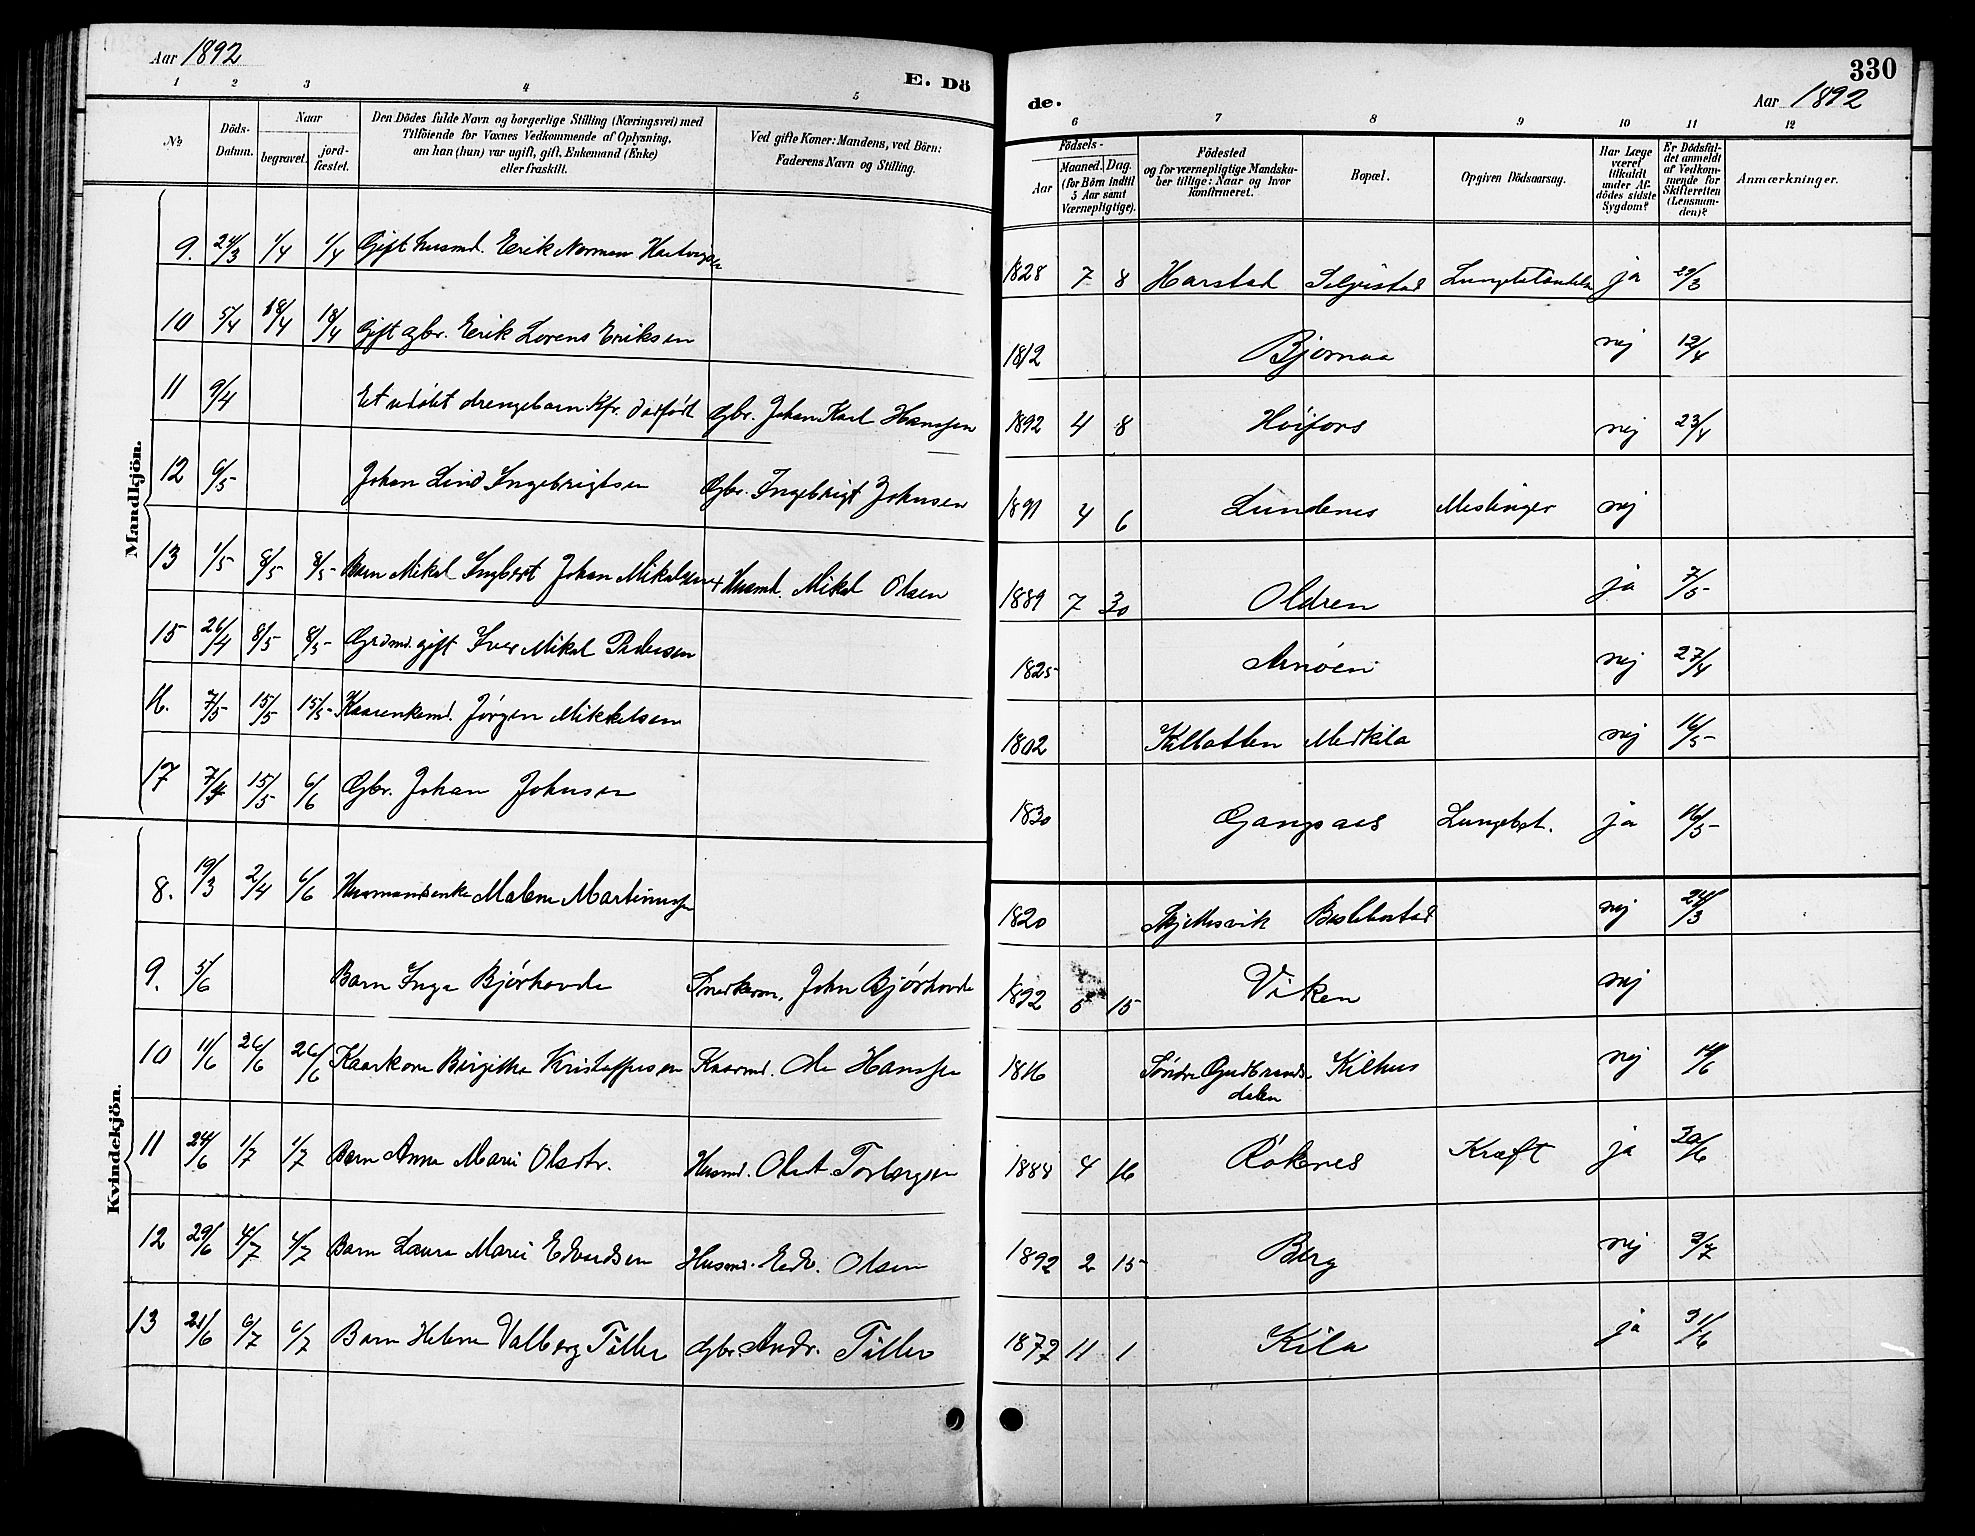 Aar 1892
E. Dö
1 2 3 4 5
№
Döds-Datum.
Naar
begravet.
jord-fæstet.
Den Dödes fulde Navn og borgerlige Stilling (Næringsvei) med
Tilföiende for Voxnes Vedkommende af Oplysning,
om han (hun) var ugift, gift, Enkemand (Enke)
eller fraskilt.
Ved gifte Koner: Mandens, ved Börn:
Faderens Navn og Stilling.
Mandkjön.
9. 24/3 1/4 1/4 Gift husmd. Erik Norman Hartvigsen
10 5/4 18/4 18/4 Gift gbr. Erik Lorens Eriksen
11 9/4 Et udöbt drengebarn. Kfr. dødfödt Gbr. Johan Karl Hanssen
12 6/5 Johan Lind Ingebrigtsen Gbr. Ingebrigt Johnsen
13 1/5 8/5 8/5 Barn Mikal Ingbert Johan Mikalsen Husmd. Mikal Olsen
15 26/4 8/5 8/5 Grdmd. gift Iver Mikal Pedersen
16. 7/5 15/5 15/5 Kaarenkemd. Jörgen Mikkelsen
17 15/5 6/6 Gbr. Johan Johnsen
Kvindekjön.
8. 19/3 2/4 6/6 Husmandsenke Malene Martinussen
9. 5/6 Barn Inga Bjórhovde Snedkerm. John Bjórhovde
10 11/6 26/6 26/6 Kaarkone Birgitha Kristoffersen Kaarmd. Ole Hanssen
11 24/6 1/7 1/7 Barn Anna Marie Olsdtr. Husmd. Olaf Torbergsen
12 29/6 4/7 4/7 Barn Laura Marie Edvardsen Husmd. Edv. Olsen
13 21/6 6/7 6/7 Barn Helena Valborg Tiller Gbr. Andr. Tiller
330
de.
Aar 1892
6 7 8 9 10 11 12
Födsels-
Aar
Maaned. Dag.
(for Börn indtil
5 Aar samt
Værnepligtige).
Födested
og for værnepligtige Mandska-
ber tillige: Naar og hvor
konfirmeret.
Bopæl.
Opgiven Dödsaarsag.
Har Læge
været
tilkaldt
under Af-
dödes sidste
Sygdom?
Er Dödsfal-
det anmeldt
af Vedkom-
mende for
Skifteretten
(Lensman-
den)?
Anmærkninger.
1828 7 8 Harstad Seljestad ja 29/3
1812 Bjornaa nej 12/4
1892 4 8 Höifors nej 23/4
1891 4 6 Lundenes Meslinger nej
1889 7 30 Oldren ja 7/5
1825 Arnöen nej 27/4
1802 Kilbotten Medkila nej 16/5
1830 Gangsaas Lungebet. ja 16/5
1820 nej 24/3
1892 5 15 Viken nej
1816 Söndre Gudbrands-
dalen Kilhus nej 14/6
1884 4 16 Röknes Kræft ja 30/6
1892 2 15 Berg nej 3/7
1879 11 1 Kila ja